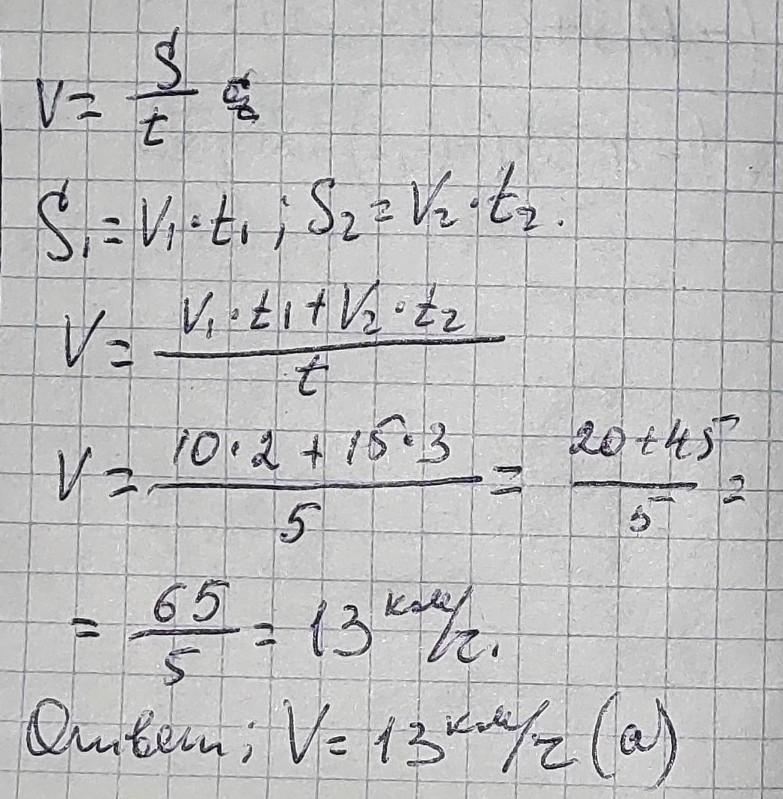 V = S/t
S₁ = V₁·t₁; S₂ = V₂·t₂.
V = (V₁·t₁ + V₂·t₂)/t
V = (10·2 + 15·3)/5 = (20+45)/5 =
= 65/5 = 13 км/ч.
Ответ; V = 13 км/ч (а)